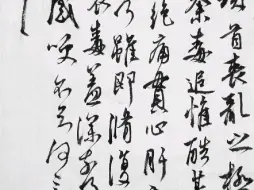 首喪亂之極
荼毒追惟酷甚
絕痛貫心肝
雖即脩復
哀毒益深奈
感哽不知何言